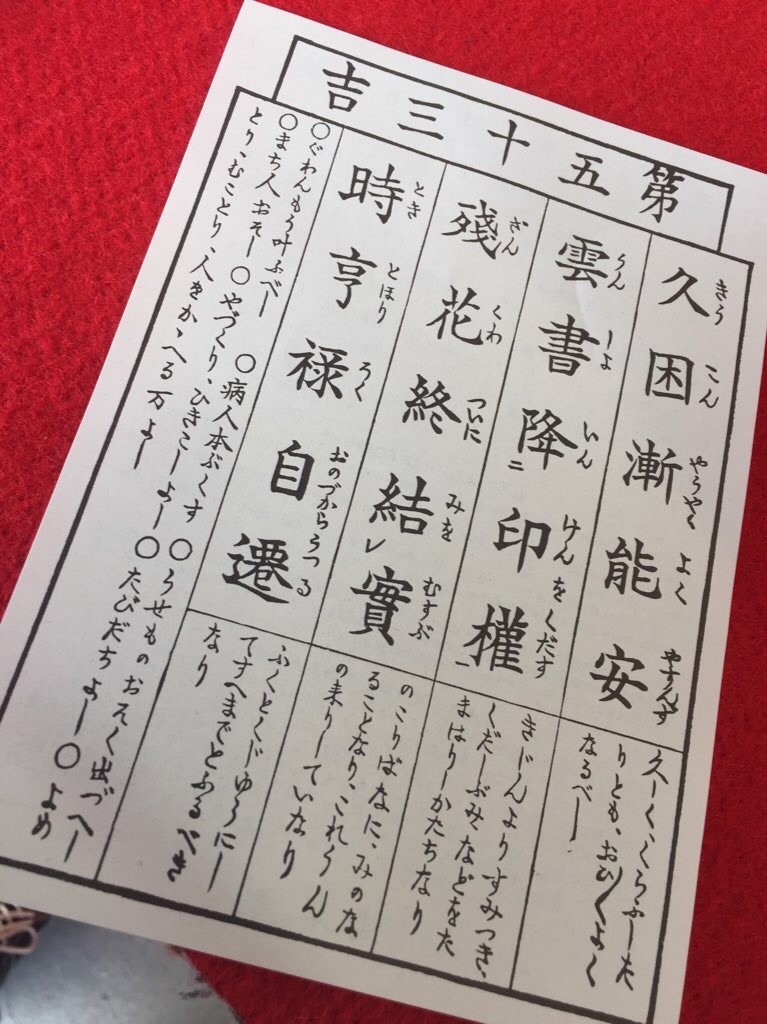 第五十三吉
久困漸能安
きうこんやうやくよくやすんず
久しくくらふした
りとも、おひ〳〵よく
なるべし
雲書降二印權一
うんしよいんけんをくだす
きじんよりすみつき、
くだしぶみ、などをた
まはりしかたちなり
殘花終結レ實
ざんくわついにみをむすぶ
のこりばなに、みのな
ることなり、これうん
の来りしていなり
時亨禄自遷
ときとほりろくおのづからうつる
ふくとくじゆうにし
てすへまでとふるべき
なり
○ぐわんもう叶ふべし ○病人本ぶくす ○うせものおそく出づべし
○まち人おそし ○やづくり、ひきこしよし ○たびだちよし ○よめ
とり、むことり、人をかゝへる万よし